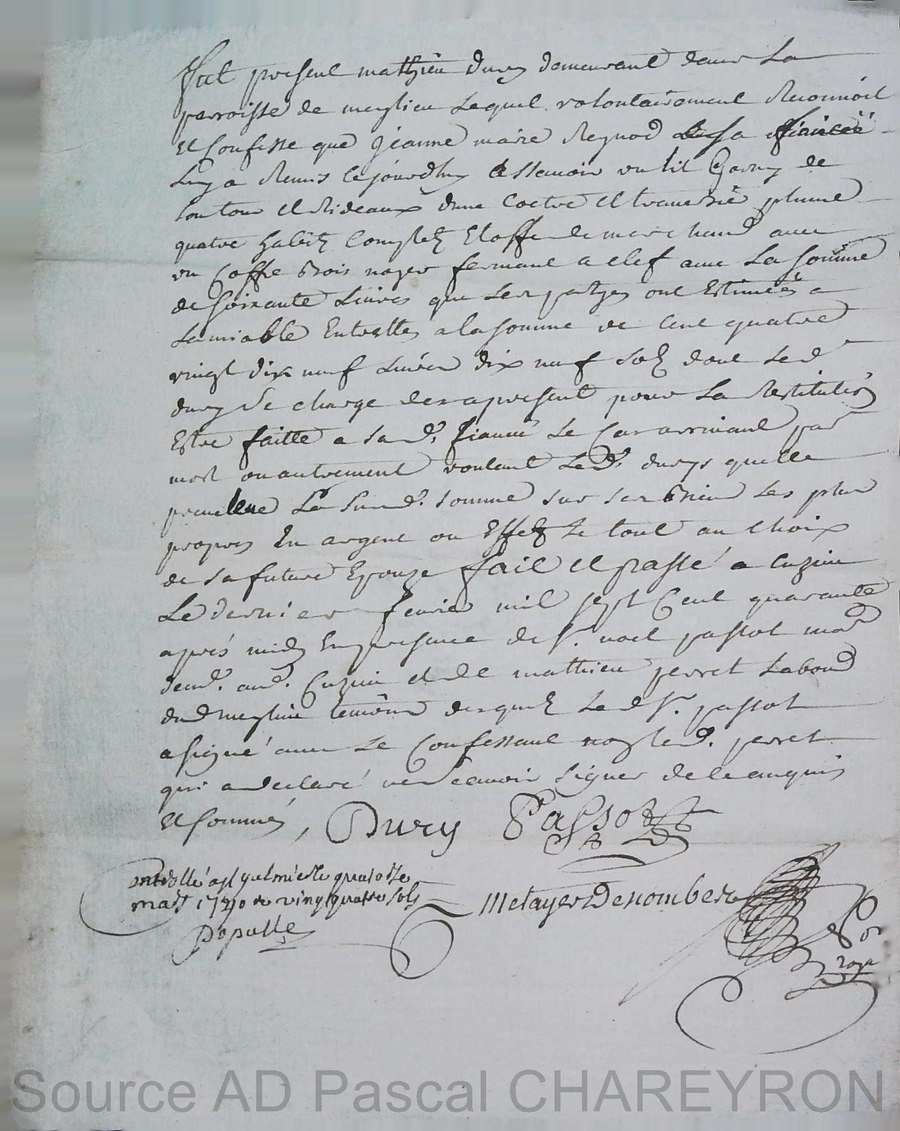 fut present mathieu dury demeurant dans La
parroisse de meylieu Lequel volontairement Reconnoit
et Confesse que jeanne marie Reynod sa fiancée
Luy a Remis Cejourdhuy assavoir un lit Garny de
son tour et Rideaux dune Coetre et traversié plume
quatre habitz Complets Etoffe de marchand avec
un Coffre Bois noyer fermant a clef avec La somme
de soixante Livres que Les partyes ont Estimées a
Lamiable Entrelles a la somme de Cent quatre
vingt dix neuf Livres dix neuf solz dont Led
dury Se charge des apresent pour La Restitution
Estre faitte a sad. fiancée Le Cas arrivant par
mort ou autrement voulant Led. dury quelle
prenne La susd. somme sur ses Biens Les plus
propres En argent ou Effetz Le tout au Choix
de sa future Epouze fait et passé a Cuzieu
Le dernier fevrier mil sept Cent quarante
après midy En presence de Sr. noel passot md
demt. aud. Cuzieu et de mathieu perret Labourd
dud meylieu temoins desquelz Led Sr. passot
a signé avec Le Confessant non Led. perret
qui a declaré ne scavoir signer de ce enquis
et sommés, Dury Passot
controllé a st galmier le quatorze
mars 1740 Rx vingt quatre sols
Populle
Metayer Denombe
Nor
roya
Source AD Pascal CHAREYRON